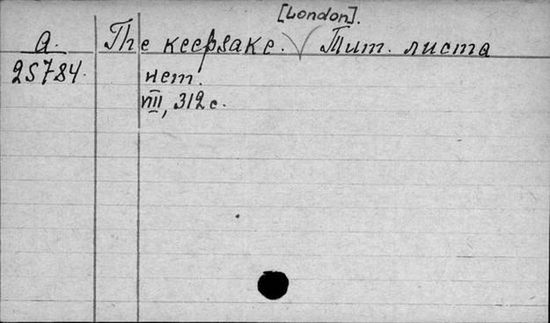 [London].
а. The keepsake. Тит. листа
25784. нет.
VIII, 312 с.